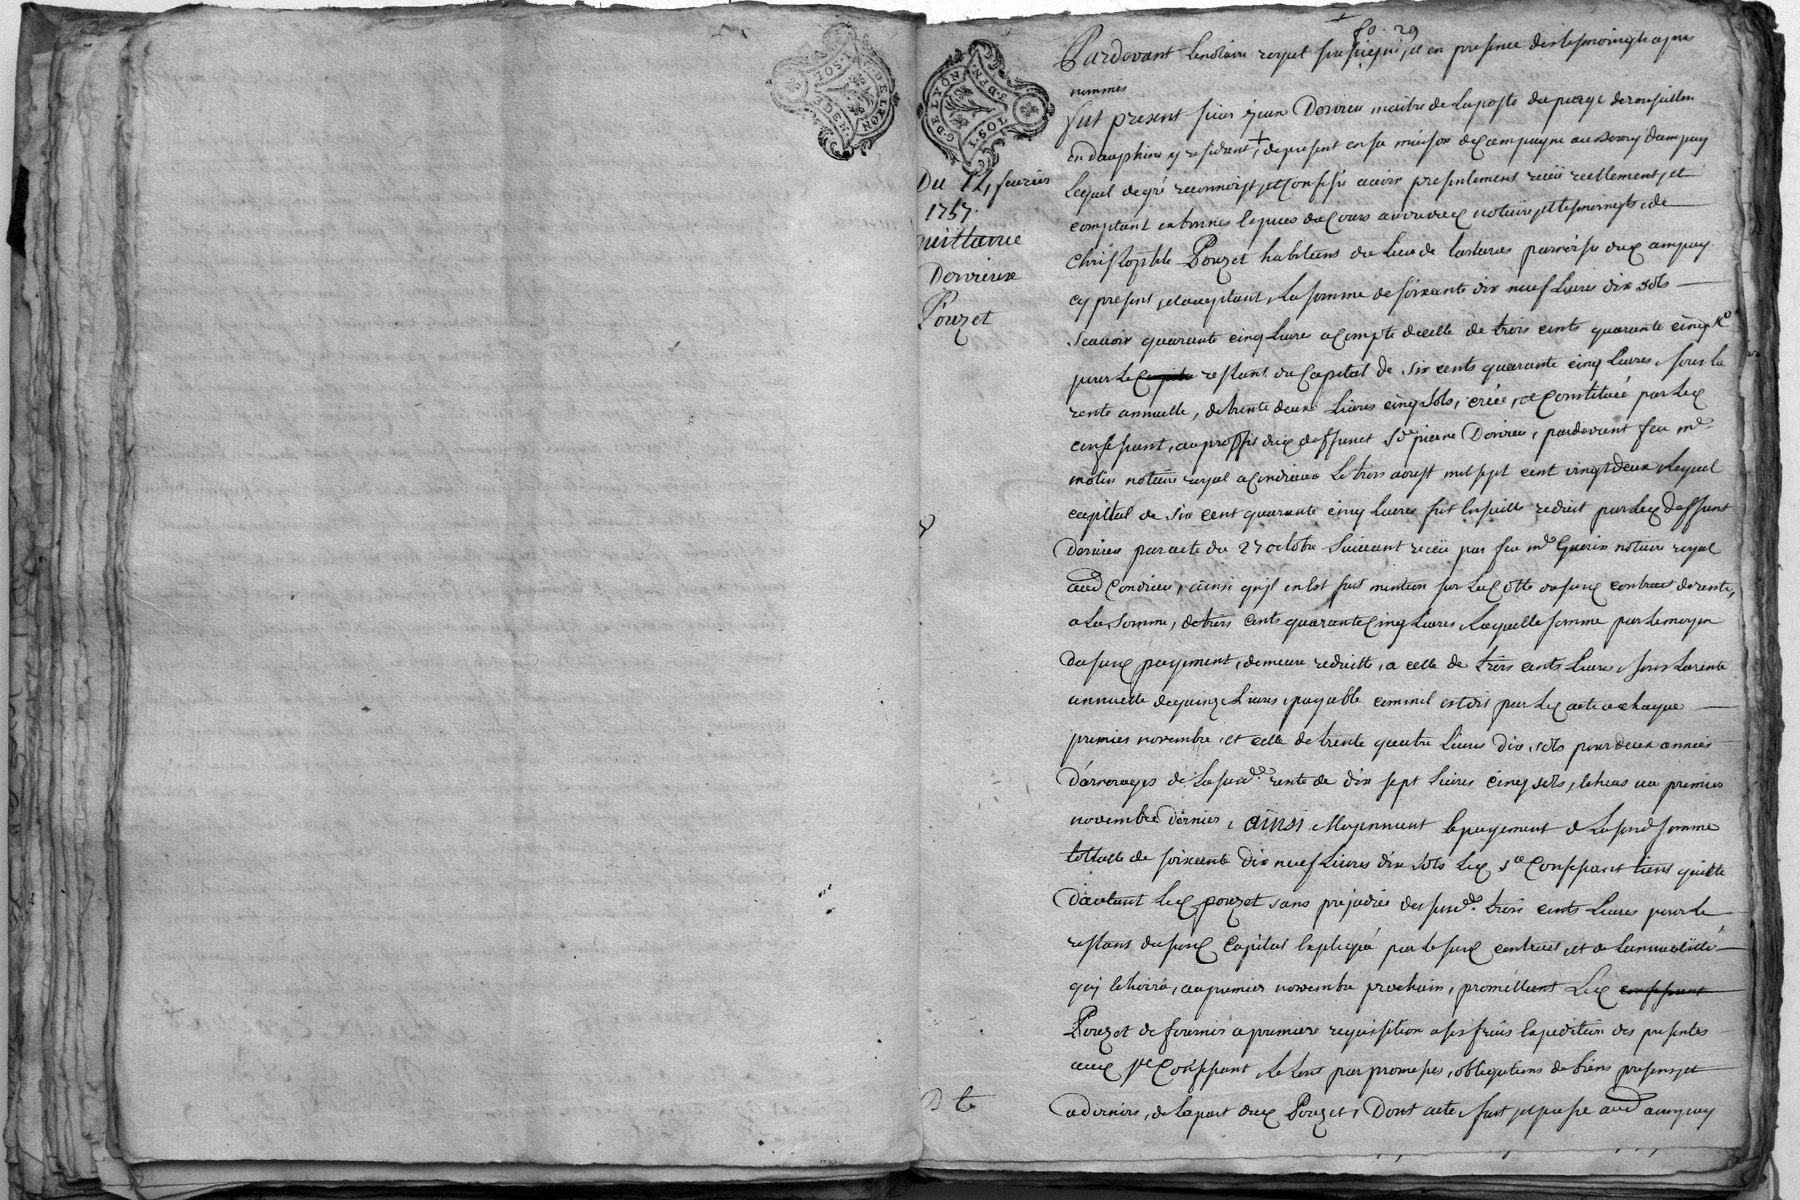 fo. 29
G. DE LYON
1. SOL
Du 12, feurier
1757.
quittance
Dervieux
Pouzet
Pardevant Le notaire royal soussigné, et en presence des tesmoings apres
nommés
fut present sieur jean Dervieu maitre de La poste du peage de roussillon
en dauphiné y residant, de present en sa maison de campagne au d'ampuy
Lequel de gré reconnoist, et Confesse avoir presentement receü reellement, et
comptant en bonnes Especes de Cours au veu de notaire, et tesmoings, de
Christophle Pouzet habitans du Lieu de parroisse dud ampuy
cy present, et acceptant, La somme de soixante dix neuf Livres dix sols
Scavoir quarante cinq Livres a Compte de celle de trois cents quarante cinq L
pour Le restant du Capital de six cents quarante cinq Livres, sous La
rente annuelle, de trente deux Livres cinq sols, créée, et Constituée par Led
confessant, au proffit dud deffunct Sr pierre Dervieu, pardevant feu me
molin notaire royal a Condrieux Le trois aoust mil sept cent vingt deux, Lequel
capital de six cent quarante cinq Livres fut Ensuitte reduit par Led deffunt
Dervieu par acte du 27 octobre suivant receü par feu me Guerin notaire royal
aud Condrieu, ainsi qu'il en Est fait mention sur La Cotte du susd contract de rente,
a La Somme, de trois cents quarante Cinq Livres, Laquelle somme par Le moyen
du susd payement, demeure reduitte, a celle de trois cents Livres, sous La rente
annuelle de quinze Livres, payable comme il est dit par Led acte a chaque
premier novembre, et celle de trente quatre Livres dix sols pour deux années
d'arrerages de La susde rente de dix sept Livres Cinq sols, Echeus au premier
novembre dernier, ainsi Moyennant Le payement de La susd somme
tottalle de soixante dix neuf Livres dix sols Led sr Confessant tient quitte
d'autant Led pouzet sans prejudice des susd trois cents Livres pour Le
restans du susd Capital Expliqué par Le susd contract, et de L'annuallité
quy Echoirra, au premier novembre prochain, promettant Led confessant
Pouzet de fournir a premiere requisition a ses frais Expedition des presentes
aud sr Confessant, Le tout par promesses, obligations de biens presens, et
advenirs, de La part dud Pouzet, Dont acte, fait, et passé aud ampuy